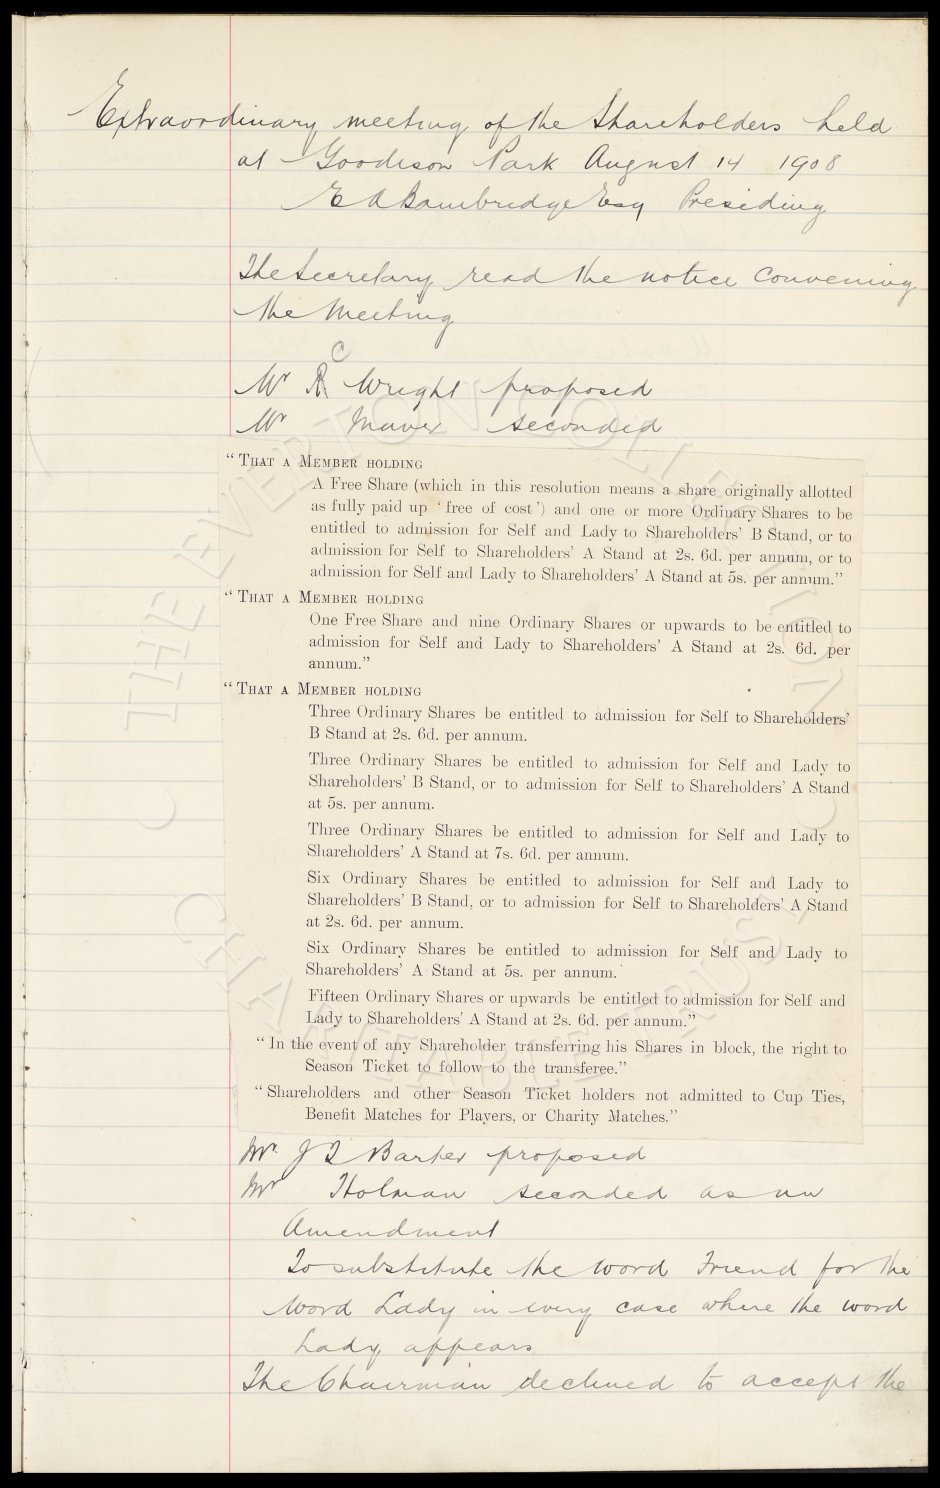 Extraordinary meeting of the Shareholders held
at Goodison Park August 14 1908
E A Bainbridge Esq Presiding
The Secretary read the notice convening
the Meeting
C
Mr R Wright proposed
Mr Maver seconded
“ THAT A MEMBER HOLDING
A Free Share (which in this resolution means a share originally allotted
as fully paid up ‘ free of cost ’) and one or more Ordinary Shares to be
entitled to admission for Self and Lady to Shareholders’ B Stand, or to
admission for Self to Shareholders’ A Stand at 2s. 6d. per annum, or to
admission for Self and Lady to Shareholders’ A Stand at 5s. per annum.”
“ THAT A MEMBER HOLDING
One Free Share and nine Ordinary Shares or upwards to be entitled to
admission for Self and Lady to Shareholders’ A Stand at 2s. 6d. per
annum.”
“ THAT A MEMBER HOLDING
Three Ordinary Shares be entitled to admission for Self to Shareholders’
B Stand at 2s. 6d. per annum.
Three Ordinary Shares be entitled to admission for Self and Lady to
Shareholders’ B Stand, or to admission for Self to Shareholders’ A Stand
at 5s. per annum.
Three Ordinary Shares be entitled to admission for Self and Lady to
Shareholders’ A Stand at 7s. 6d. per annum.
Six Ordinary Shares be entitled to admission for Self and Lady to
Shareholders’ B Stand, or to admission for Self to Shareholders’ A Stand
at 2s. 6d. per annum.
Six Ordinary Shares be entitled to admission for Self and Lady to
Shareholders’ A Stand at 5s. per annum.
Fifteen Ordinary Shares or upwards be entitled to admission for Self and
Lady to Shareholders’ A Stand at 2s. 6d. per annum.”
“ In the event of any Shareholder transferring his Shares in block, the right to
Season Ticket to follow to the transferee.”
“ Shareholders and other Season Ticket holders not admitted to Cup Ties,
Benefit Matches for Players, or Charity Matches.”
Mr J T Barker proposed
Mr Holman seconded as an
Amendment
To substitute the word Friend for the
word Lady in every case where the word
Lady appears
The Chairman declined to accept the
THE EVERTON COLLECTION
CHARITABLE TRUST